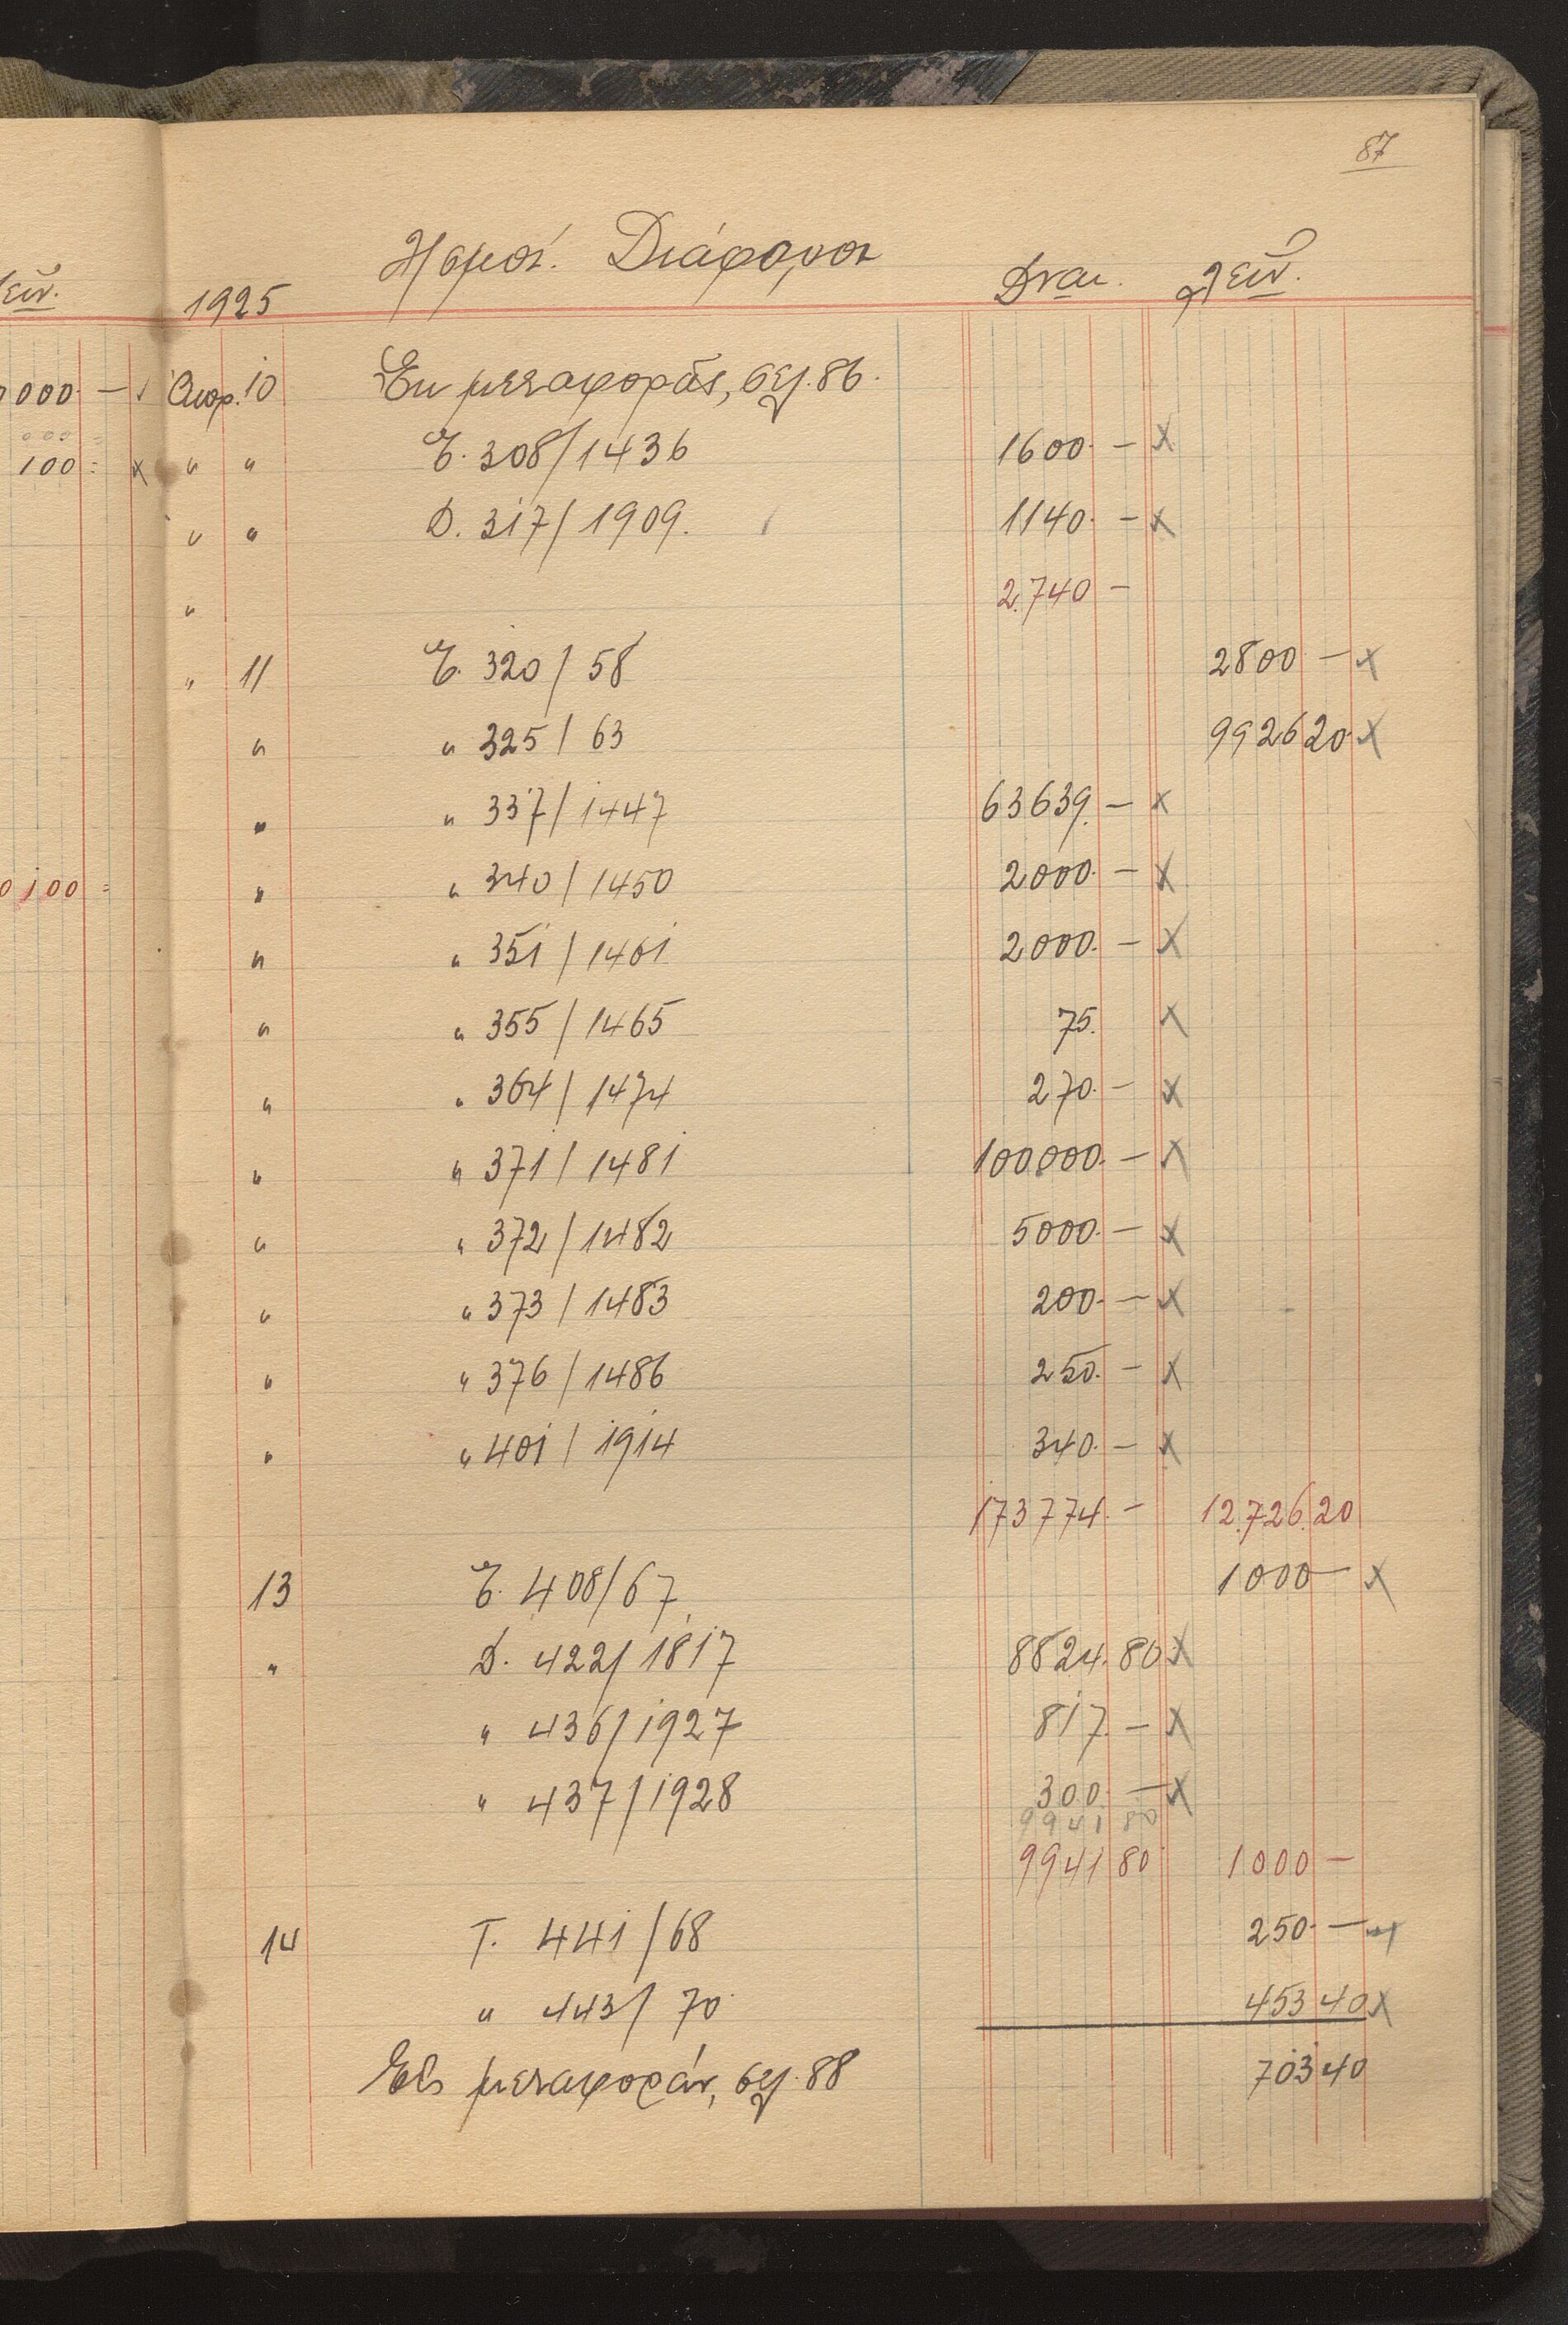 87
Διάφοροι
1925
Ἐκ μεταφορᾶς, σελ. 86.
000 — 10
Ε. 308/1436 1600 — x
100 = x " "
" " Δ. 317/1909. 1140 — x
" 2.740 —
" 11 Ε. 320/58 2800 — x
" " 325/63 9926 20 x
" " 337/1447 63639 — x
" " 340/1450 2000 — x
0100 =
" " 351/1461 2000 — x
" " 355/1465 75. x
" " 364/1474 270 — x
" " 371/1481 100000 — x
" " 372/1482 5000 — x
" " 373/1483 200 — x
" " 376/1486 250 — x
" " 401/1914 340 — x
173774 — 12.726.20
13 Ε. 408/67 1000 — x
" Δ. 422/1817 8824.80 x
" 436/1927 817 — x
" 437/1928 300 — x
9941 80
9941 80 1000 —
14 Τ. 441/68 250 — x
" 443/70 453 40 x
Εἰς μεταφοράν, σελ. 88 703 40